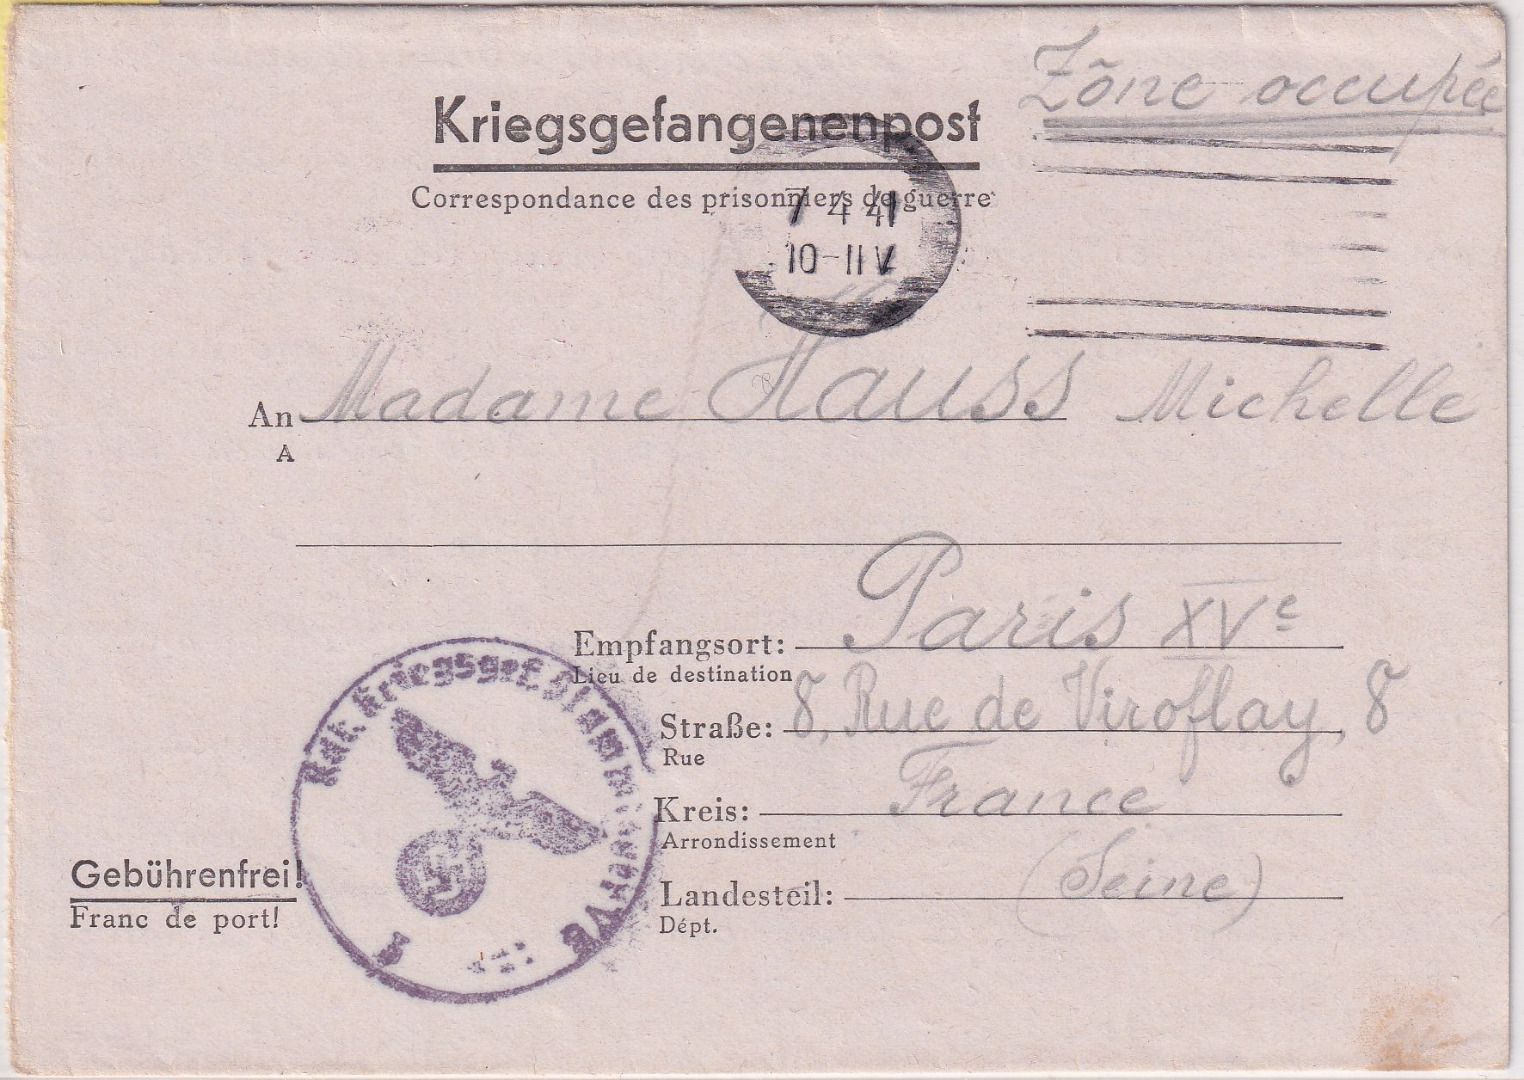 Zône occupée
Kriegsgefangenenpost
Correspondance des prisonniers de guerre
7 4 41
10-11 V
An Madame Hauss Michelle
A
Empfangsort: Paris XVe
Lieu de destination
Straße: 8, Rue de Viroflay, 8
Rue
Kreis: France
Arrondissement
Landesteil: (Seine)
Dépt.
Gebührenfrei!
Franc de port!